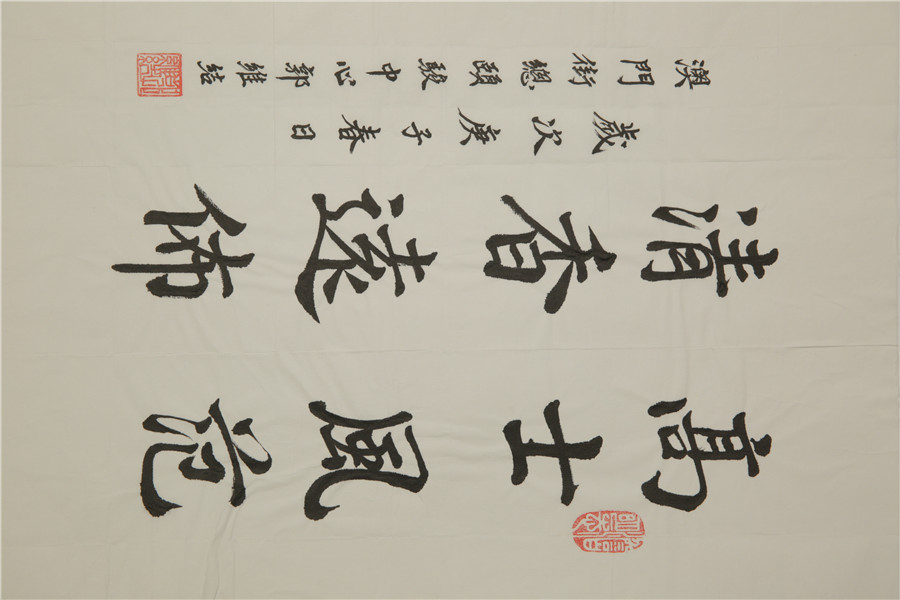 高士風范
清香遠佈
歲次庚子春日
澳門街總頤駿中心郭維結